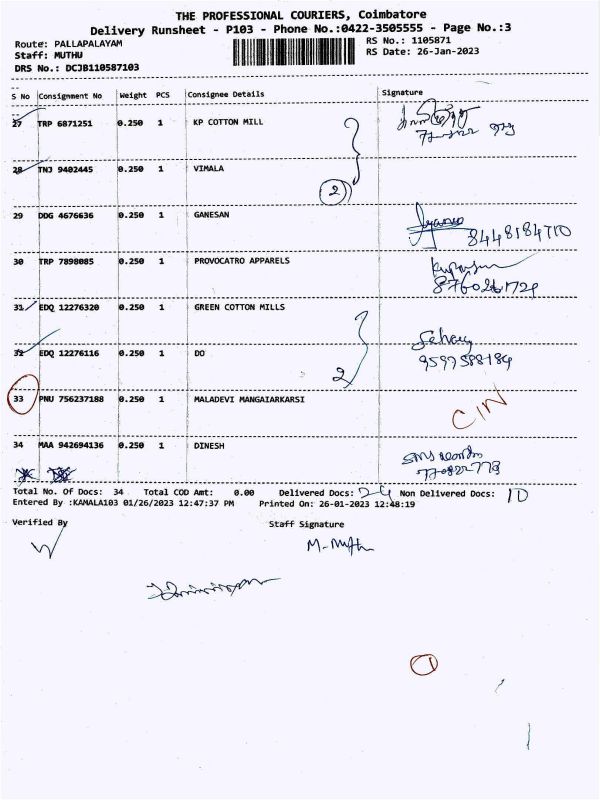 THE PROFESSIONAL COURIERS, Coimbatore
Delivery Runsheet - P103 - Phone No.:0422-3505555 - Page No.:3
Route: PALLAPALAYAM
RS No.: 1105871
Staff: MUTHU
RS Date: 26-Jan-2023
DRS No.: DCJB110587103
S No Consignment No Weight PCS Consignee Details Signature
27 TRP 6871251 0.250 1 KP COTTON MILL
28 TNJ 9402445 0.250 1 VIMALA
2
29 DDG 4676636 0.250 1 GANESAN
8448184710
30 TRP 7898085 0.250 1 PROVOCATRO APPARELS
31 EDQ 12276320 0.250 1 GREEN COTTON MILLS
32 EDQ 12276116 0.250 1 DO
9597588184
2
33 PNU 756237188 0.250 1 MALADEVI MANGAIARKARSI
CIN
34 MAA 942694136 0.250 1 DINESH
Total No. Of Docs: 34 Total COD Amt: 0.00 Delivered Docs: 24 Non Delivered Docs: 10
Entered By :KAMALA103 01/26/2023 12:47:37 PM Printed On: 26-01-2023 12:48:19
Verified By Staff Signature
M. Muthu
1